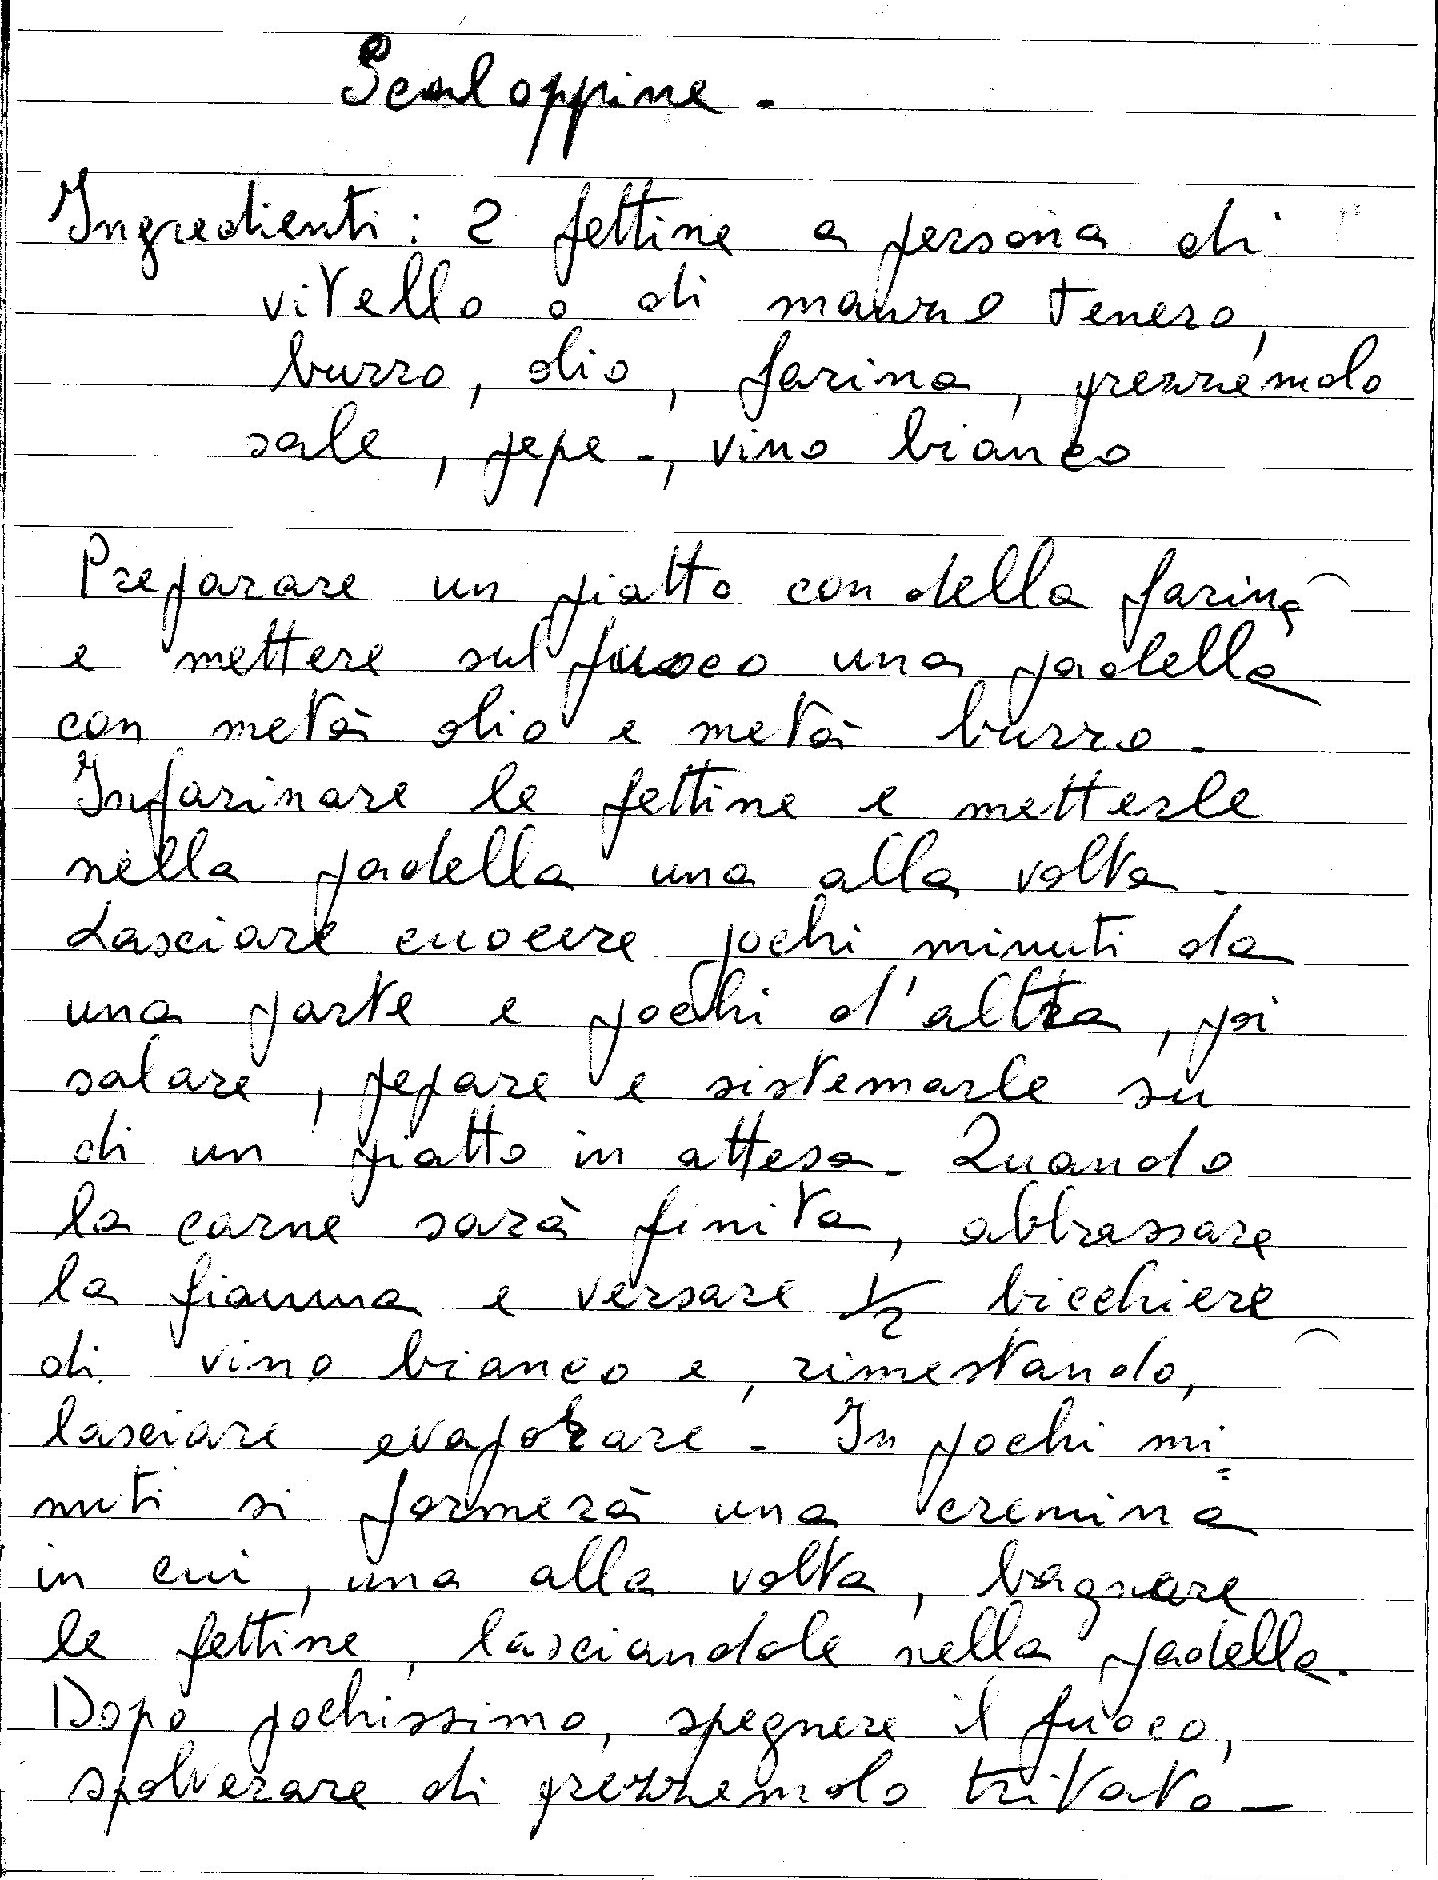 Scaloppine.
Ingredienti: 2 fettine a persona di
vitello o di manzo tenero,
burro, olio, farina, prezzemolo
sale, pepe -, vino bianco
Preparare un piatto con della farina
e mettere sul fuoco una padella
con metà olio e metà burro.
Infarinare le fettine e metterle
nella padella una alla volta.
Lasciare cuocere pochi minuti da
una parte e pochi d'altra, poi
salare, pepare e sistemarle su
di un piatto in attesa. Quando
la carne sarà finita, abbassare
la fiamma e versare 1/2 bicchiere
di vino bianco e, rimestando,
lasciare evaporare - In pochi mi=
nuti si formerà una cremina
in cui, una alla volta, bagnare
le fettine, lasciandole nella padella.
Dopo pochissimo, spegnere il fuoco,
spolverare di prezzemolo tritato -